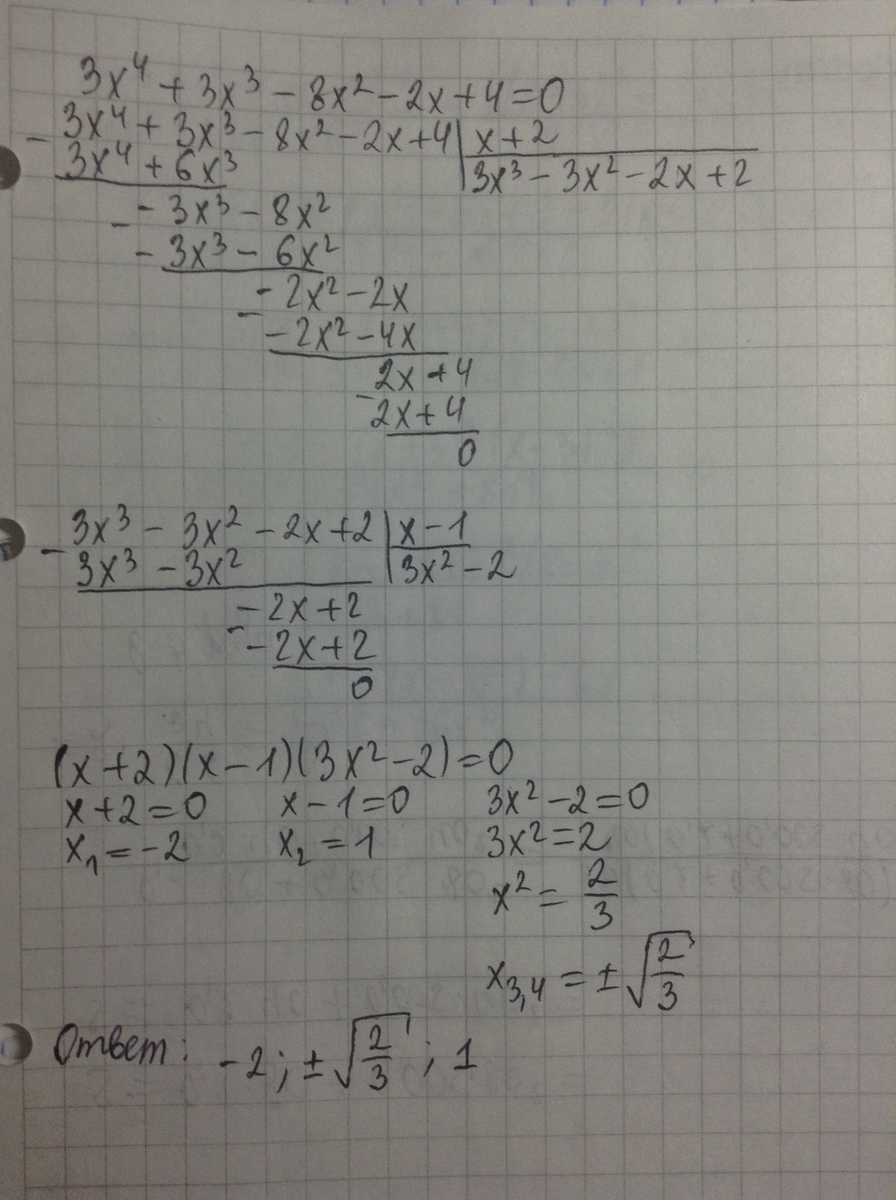 3x⁴ + 3x³ - 8x² - 2x + 4 = 0
- 3x⁴ + 3x³ - 8x² - 2x + 4 | x + 2
3x⁴ + 6x³ | 3x³ - 3x² - 2x + 2
- - 3x³ - 8x²
- 3x³ - 6x²
- - 2x² - 2x
- 2x² - 4x
- 2x + 4
2x + 4
0
- 3x³ - 3x² - 2x + 2 | x - 1
3x³ - 3x² | 3x² - 2
- - 2x + 2
- 2x + 2
0
(x + 2)(x - 1)(3x² - 2) = 0
x + 2 = 0 x - 1 = 0 3x² - 2 = 0
x₁ = -2 x₂ = 1 3x² = 2
x² = 2/3
x₃,₄ = ±√(2/3)
Ответ: -2; ±√(2/3); 1